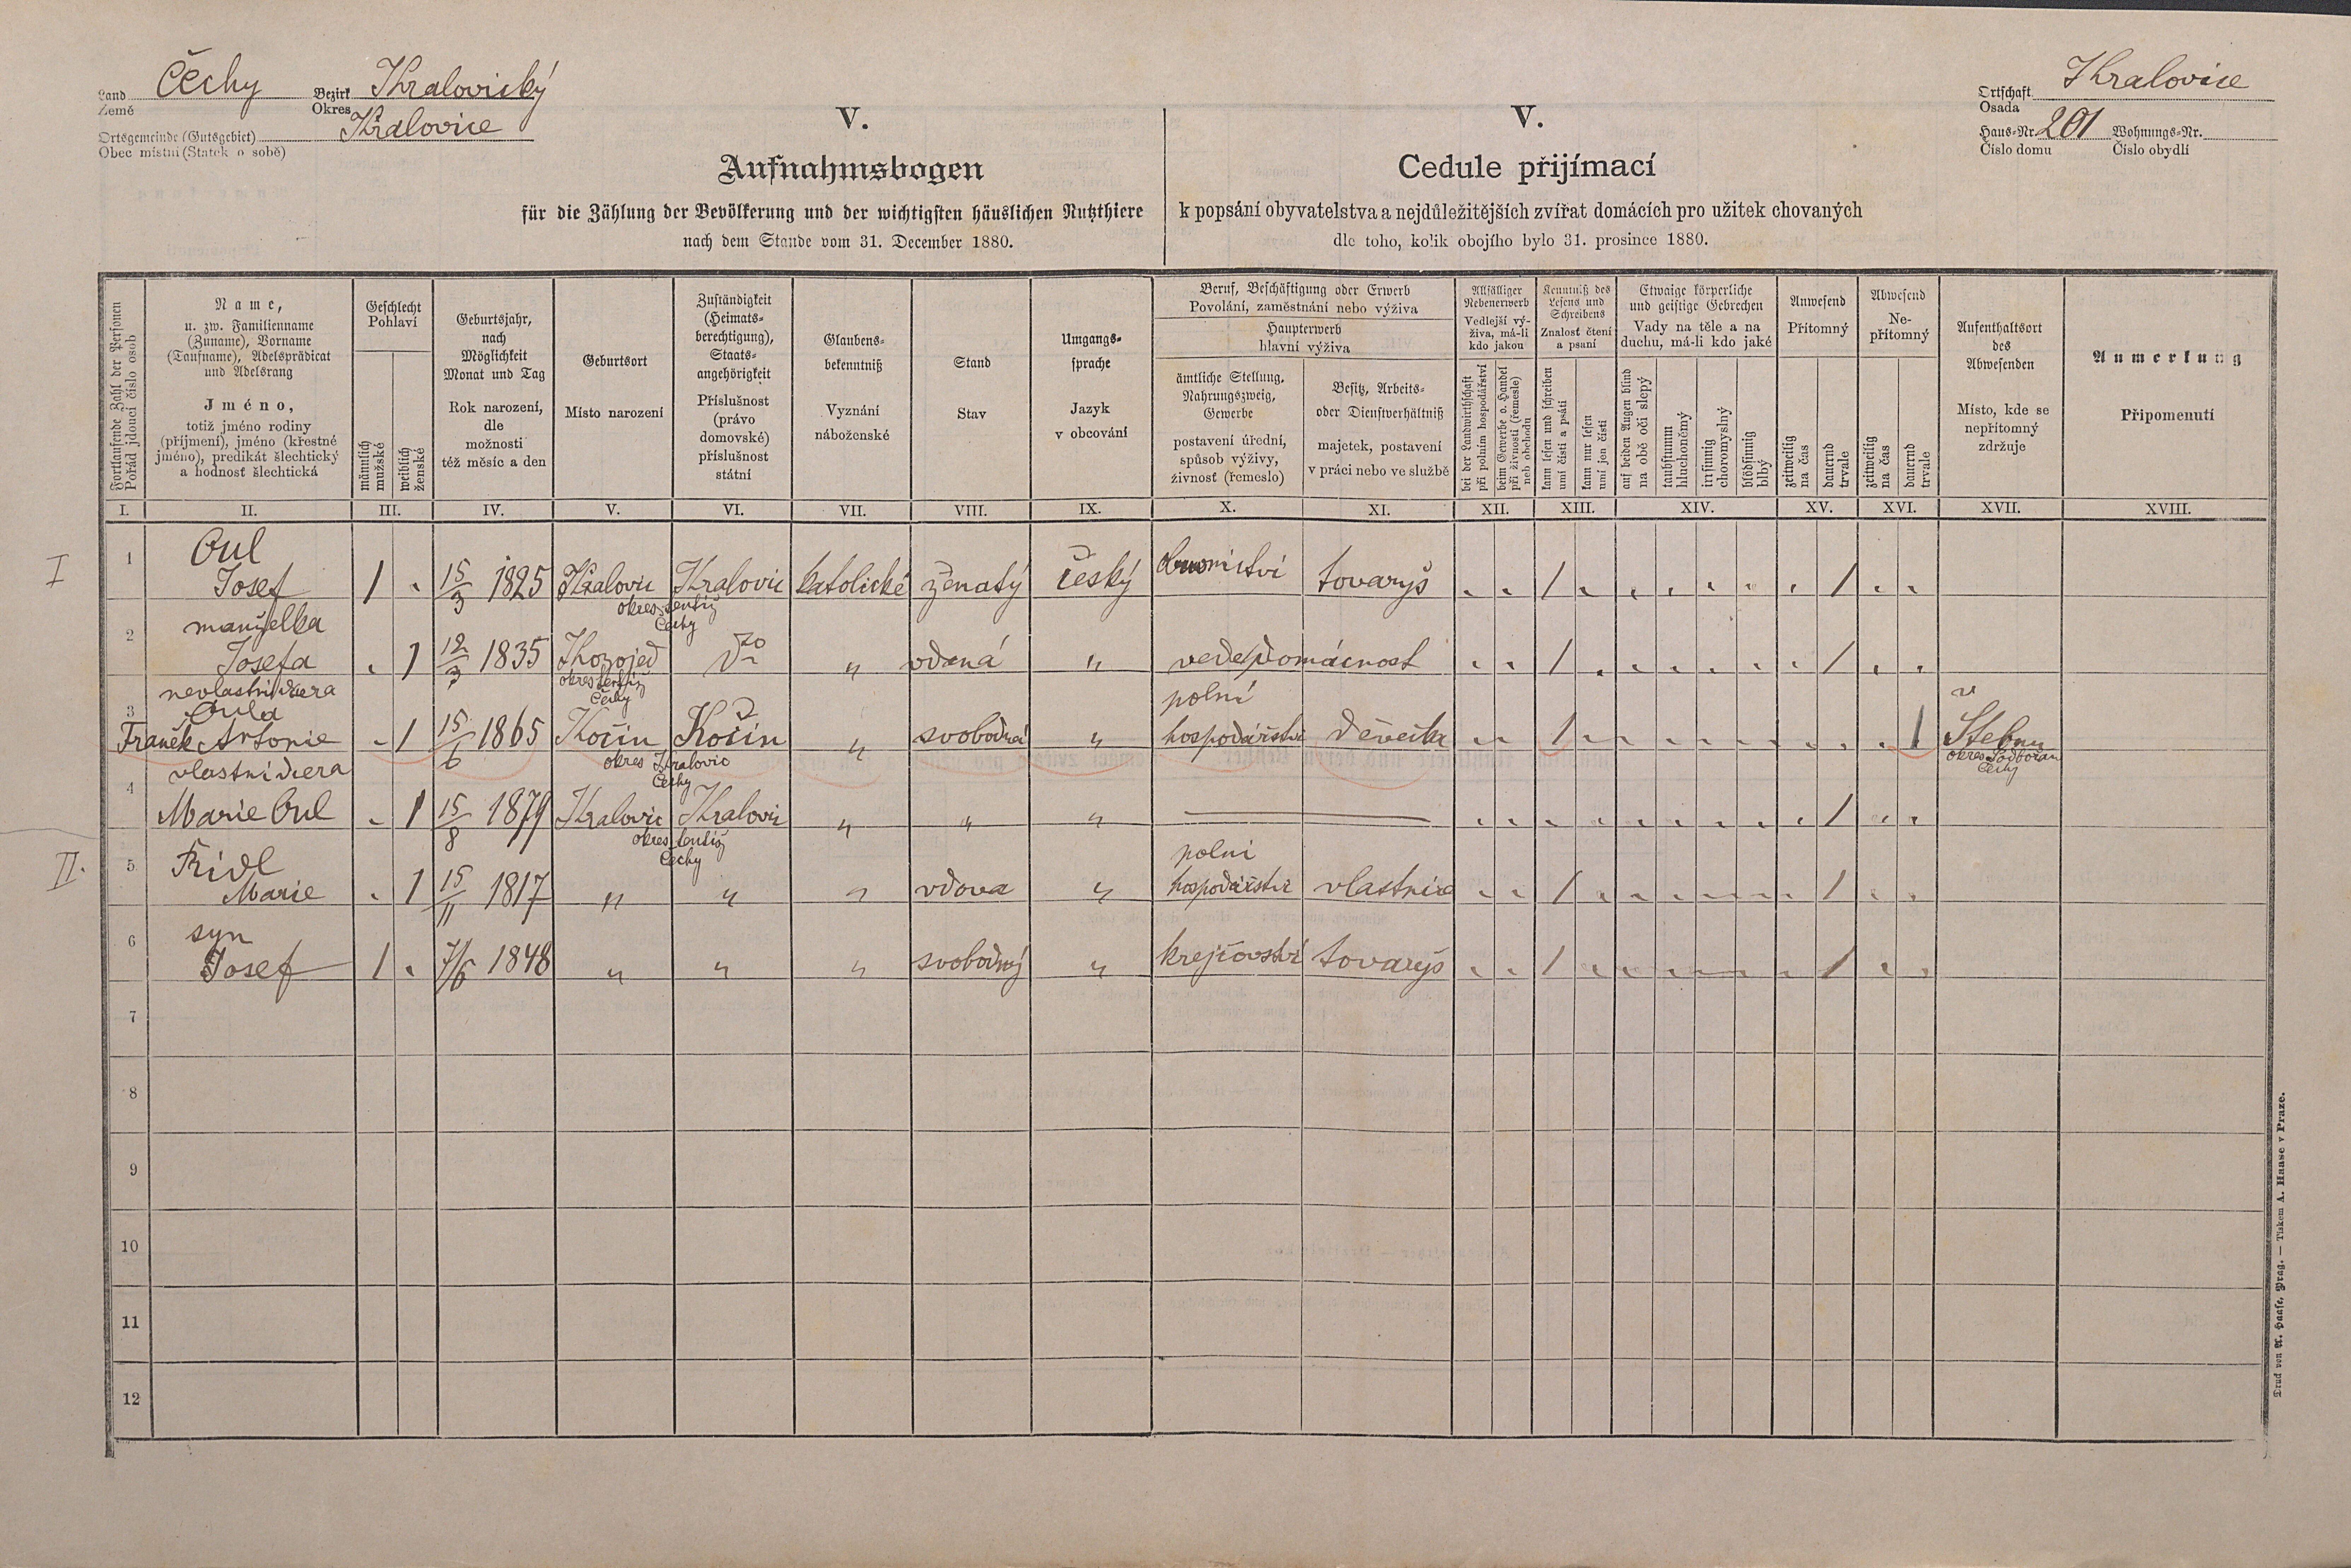 Land Čechy Bezirk Kralovický
Země Okres
Ortsgemeinde (Gutsgebiet) Kralovice
Obec místní (Statek o sobě)
V.
Aufnahmsbogen
für die Zählung der Bevölkerung und der wichtigsten häuslichen Nutzthiere
nach dem Stande vom 31. December 1880.
V.
Cedule přijímací
k popsání obyvatelstva a nejdůležitějších zvířat domácích pro užitek chovaných
dle toho, kolik obojího bylo 31. prosince 1880.
Ortschaft Kralovice
Osada
Haus-Nr. 201 Wohnungs-Nr.
Číslo domu Číslo obydlí
Fortlaufende Zahl der Personen
Pořád jdoucí číslo osob
Name,
u. zw. Familienname
(Zuname), Vorname
(Taufname), Adelsprädicat
und Adelsrang
Jméno,
totiž jméno rodiny
(příjmení), jméno (křestné
jméno), predikát šlechtický
a hodnosť šlechtická
Geschlecht
Pohlaví
männlich
mužské
weiblich
ženské
Geburtsjahr,
nach
Möglichkeit
Monat und Tag
Rok narození,
dle
možnosti
též měsíc a den
Geburtsort
Místo narození
Zuständigkeit
(Heimats-
berechtigung),
Staats-
angehörigkeit
Příslušnost
(právo
domovské)
příslušnost
státní
Glaubens-
bekenntniß
Vyznání
náboženské
Stand
Stav
Umgangs-
sprache
Jazyk
v obcování
Beruf, Beschäftigung oder Erwerb
Povolání, zaměstnání nebo výživa
Haupterwerb
hlavní výživa
ämtliche Stellung,
Nahrungszweig,
Gewerbe
postavení úřední,
spůsob výživy,
živnosť (řemeslo)
Besitz, Arbeits-
oder Dienstverhältniß
majetek, postavení
v práci nebo ve službě
Allfälliger
Nebenerwerb
Vedlejší vý-
živa, má-li
kdo jakou
bei der Landwirthschaft
při polním hospodářství
beim Gewerbe o. Handel
při živnosti (řemesle)
neb obchodu
Kenntniß des
Lesens und
Schreibens
Znalost čtení
a psaní
kann lesen und schreiben
umí čísti a psáti
kann nur lesen
umí jen čísti
Etwaige körperliche
und geistige Gebrechen
Vady na těle a na
duchu, má-li kdo jaké
auf beiden Augen blind
na obě oči slepý
taubstumm
hluchoněmý
irrsinnig
choromyslný
blödsinnig
blbý
Anwesend
Přítomný
zeitweilig
na čas
dauernd
trvale
Abwesend
Ne-
přítomný
zeitweilig
na čas
dauernd
trvale
Aufenthaltsort
des
Abwesenden
Místo, kde se
nepřítomný
zdržuje
Anmerkung
Připomenutí
I. II. III. IV. V. VI. VII. VIII. IX. X. XI. XII. XIII. XIV. XV. XVI. XVII. XVIII.
I
1 Oul
Josef 1 15/3 1825 Kralovic Kralovic katolické ženatý český tovaryš / /
okres tentýž
Čechy
2 manželka
Josefa 1 12/3 1835 Kozojed dto " vdaná " vede domácnost / /
okres tentýž
Čechy
nevlastní dcera
3 Oula polní v
Franěk Antonie 1 15/6 1865 Kočín Kočín " svobodná " hospodářství děvečka / 1 Stebnu
okres Kralovic okres Podbořan
Čechy Čechy
vlastní dcera
4 Marie Oul 1 15/8 1879 Kralovic Kralovic " " " / 
okres tentýž
Čechy
II.
5 Řidl polní
Marie 1 15/11 1817 " " " vdova " hospodářství vlastnice / /
6 syn
Josef 1 7/6 1848 " " " svobodný " krejčovství tovaryš / /
7
8
9
10
11
12
Druck von A. Haase, Prag. — Tiskem A. Haase v Praze.